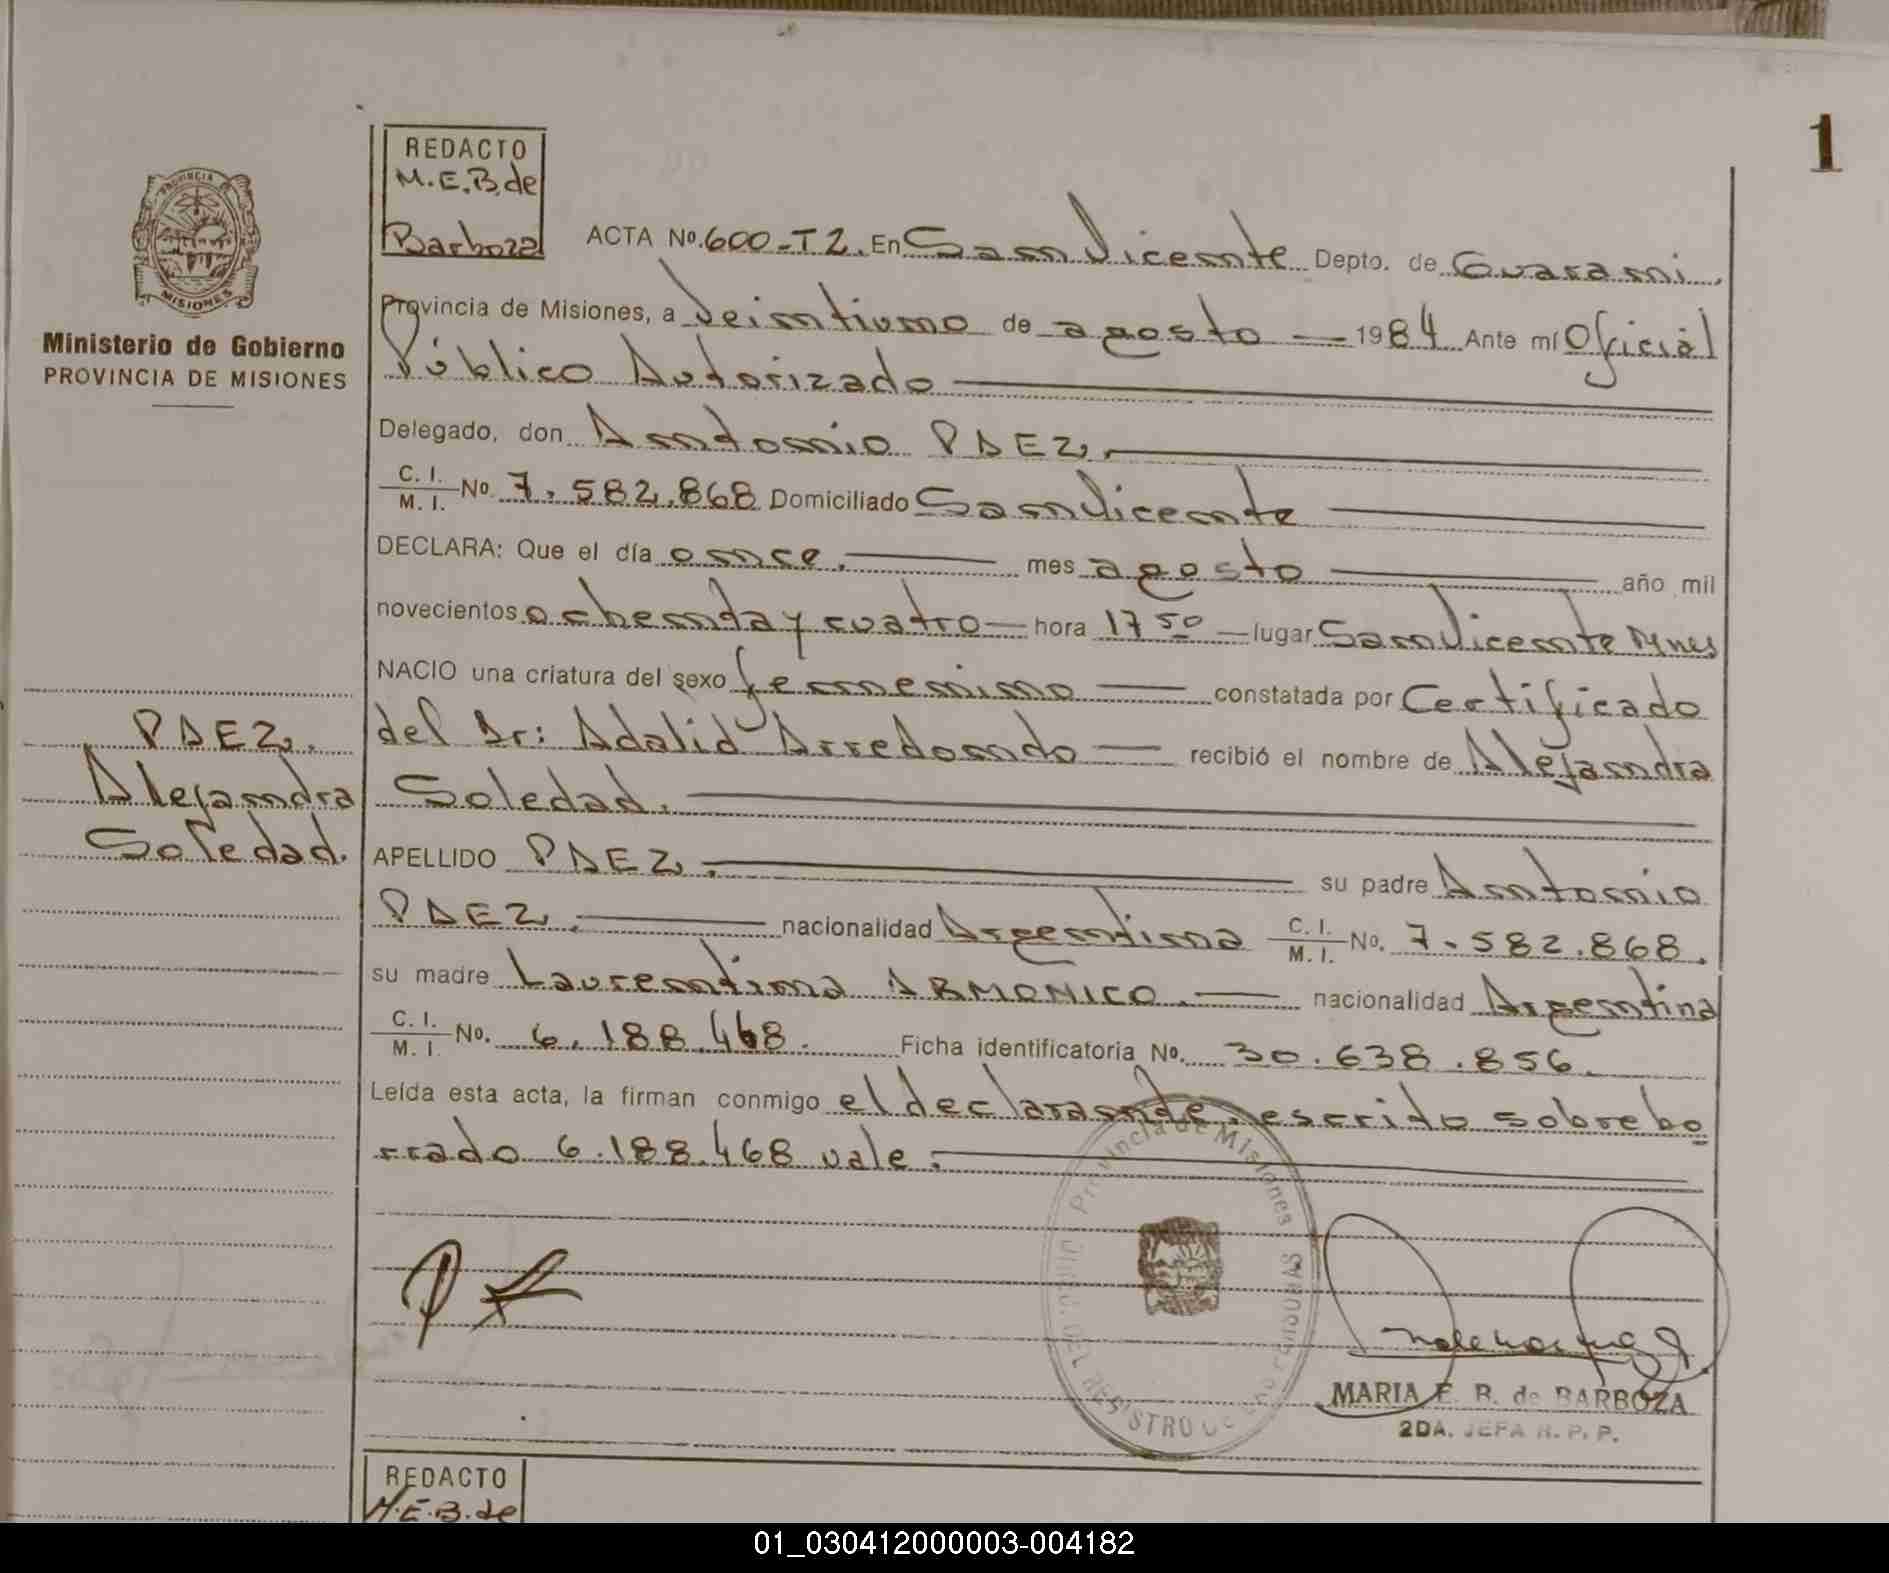 1
REDACTO
M.E.B. de
Barboza
PROVINCIA
MISIONES
Ministerio de Gobierno
PROVINCIA DE MISIONES
ACTA Nº. 600-T2. En San Vicente Depto. de Guaraní.
Provincia de Misiones, a Veintiuno de agosto — 1984 Ante mí Oficial
Público Autorizado
Delegado, don Antonio PAEZ.
C. I. / M. I. Nº 7.582.868 Domiciliado San Vicente
DECLARA: Que el día once. mes agosto año mil
novecientos ochenta y cuatro — hora 17 50 — lugar San Vicente Mnes
NACIO una criatura del sexo femenino — constatada por Certificado
del Dr: Adalid Arredondo — recibió el nombre de Alejandra
Soledad.
PAEZ.
Alejandra
Soledad.
APELLIDO PAEZ. su padre Antonio
PAEZ. nacionalidad Argentina C. I. / M. I. Nº. 7.582.868.
su madre Laurentina ARMONICO. — nacionalidad Argentina
C. I. / M. I. Nº. 6.188.468. Ficha identificatoria Nº. 30.638.856.
Leída esta acta, la firman conmigo el declarante, escrito sobrebo
rrado 6.188.468 vale.
Provincia de Misiones
MARIA E. B. de BARBOZA
2DA. JEFA R. P. P.
REDACTO
M.E.B. de
01_030412000003-004182